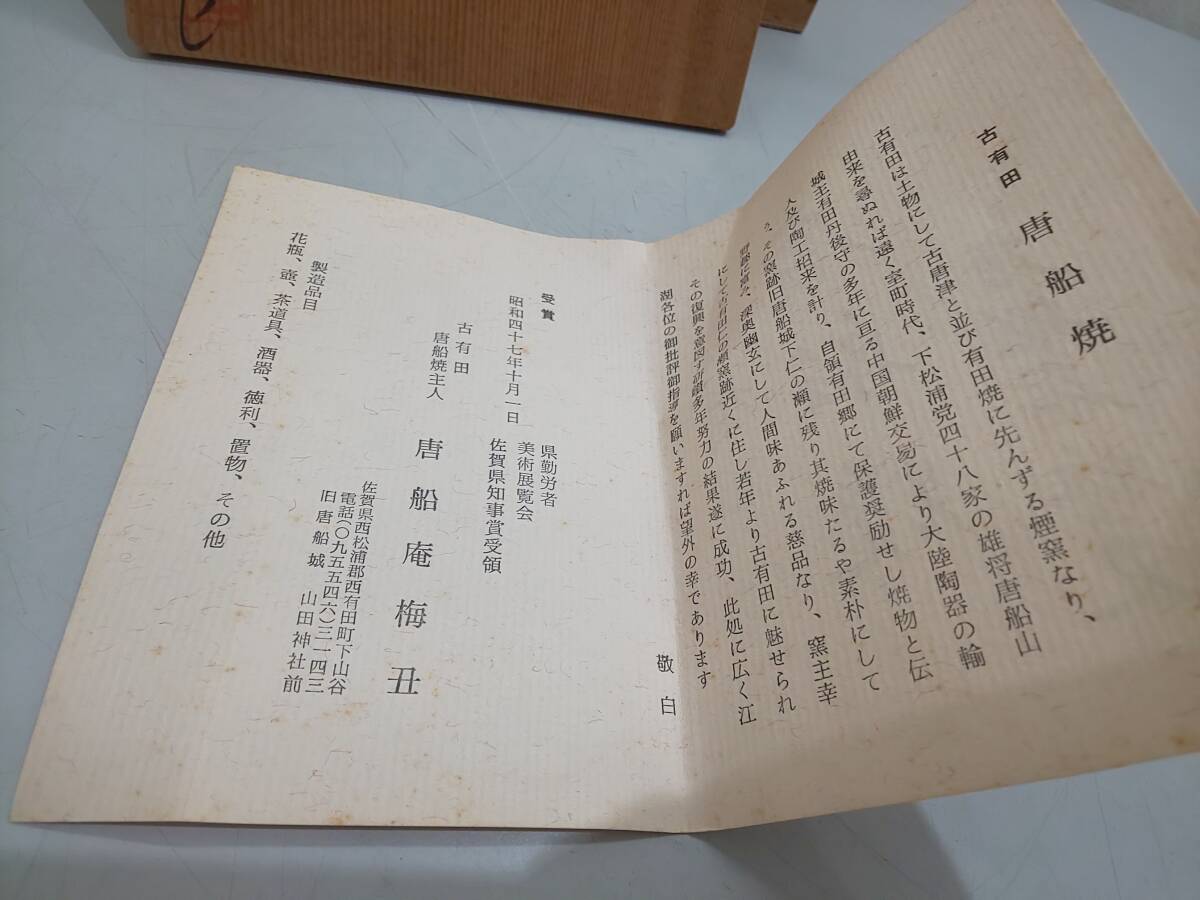 古有田 唐船焼
古有田は土物にして古唐津と並び有田焼に先んずる煙窯なり、
由来を尋ぬれば遠く室町時代、下松浦党四十八家の雄将唐船山
城主有田丹後守の多年に亘る中国朝鮮交易により大陸陶器の輸
入及び陶工招来を計り、自領有田郷にて保護奨励せし焼物と伝
う、その窯跡旧唐船城下仁の瀬に残り其焼味たるや素朴にして
に富み、深奥幽玄にして人間味あふれる慈品なり、窯主幸
にして古有田仁の瀬窯跡近くに住し若年より古有田に魅せられ
その復興を意図す研鑽多年努力の結果遂に成功、此処に広く江
湖各位の御批評御指導を願いますれば望外の幸であります
敬白
受賞
昭和四十七年十月一日
県勤労者
美術展覧会
佐賀県知事賞受領
古有田
唐船焼主人
唐船庵梅丑
佐賀県西松浦郡西有田町下山谷
電話(〇九五五四六)三一四三
旧唐船城 山田神社前
製造品目
花瓶、壺、茶道具、酒器、徳利、置物、その他